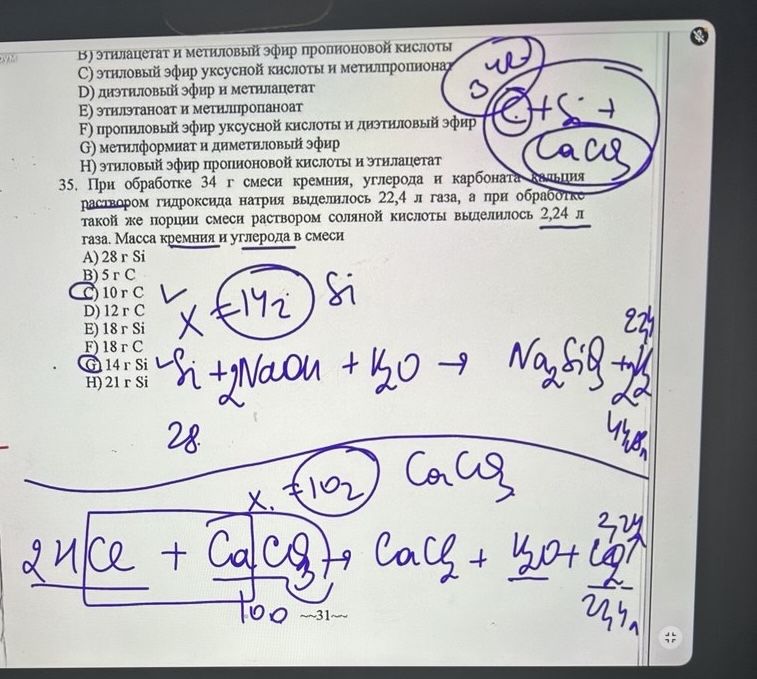 B) этилацетат и метиловый эфир пропионовой кислоты
C) этиловый эфир уксусной кислоты и метилпропионат
D) диэтиловый эфир и метилацетат
E) этилэтаноат и метилпропаноат
F) пропиловый эфир уксусной кислоты и диэтиловый эфир
G) метилформиат и диметиловый эфир
H) этиловый эфир пропионовой кислоты и этилацетат
C + Si +
CaCO3
35. При обработке 34 г смеси кремния, углерода и карбоната кальция
раствором гидроксида натрия выделилось 22,4 л газа, а при обработке
такой же порции смеси раствором соляной кислоты выделилось 2,24 л
газа. Масса кремния и углерода в смеси
A) 28 г Si
B) 5 г C
C) 10 г C
D) 12 г C
E) 18 г Si
F) 18 г C
G) 14 г Si
H) 21 г Si
X = 14г Si
22,4
Si + 2NaOH + H2O → Na2SiO3 + 2H2
28
44,8л
X = 10г CaCO3
2,24
2HCl + CaCO3 → CaCl2 + H2O + CO2↑
100
22,4л
~~31~~